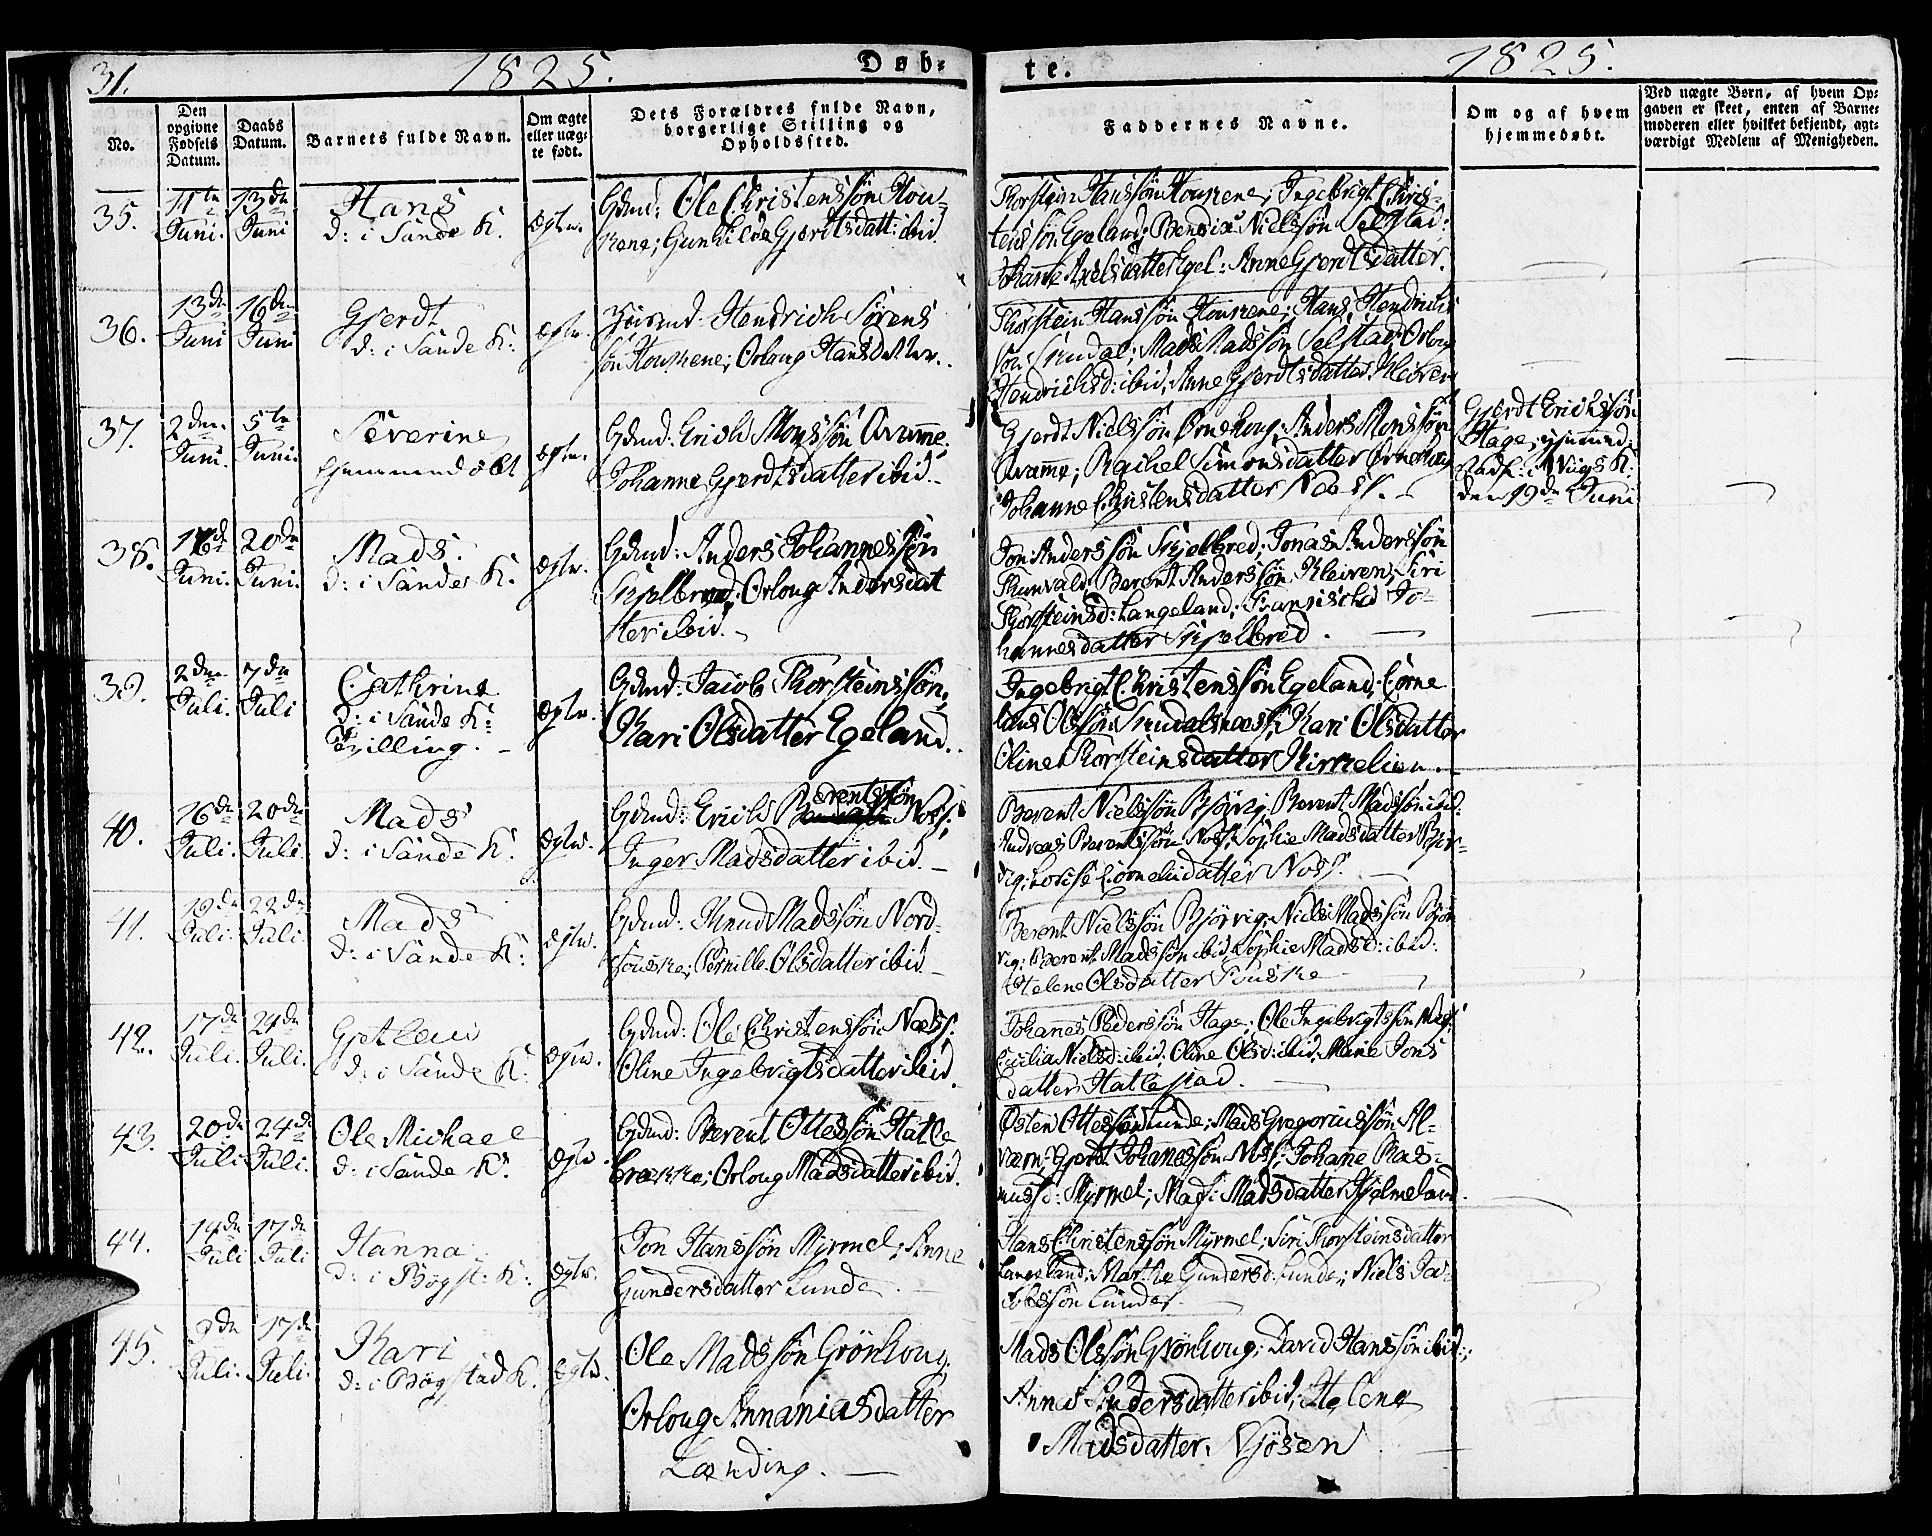 31. 1825. Døb- te. 1825.
No.
Den opgivne Fødsels Datum.
Daabs Datum.
Barnets fulde Navn.
Om ægte eller uægte født.
Dets Forældres fulde Navn, borgerlige Stilling og Opholdssted.
Faddernes Navne.
Om og af hvem hjemmedøbt.
Ved uægte Børn, af hvem Opgaven er skeet, enten af Barnemoderen eller hvilket bekjendt, agtværdigt Medlem af Menigheden.
35. 11te Juni. 13de Juni
Hans
D: i Sande K. ægte.
Gdmd: Ole Christenssøn
Gunhilde Gjerdtsdatt: ibid.
Thorstein Hanssøn Ingebrigt Chris-
tenssøn Egeland; Bendix Nielssøn Selstad:
Johanne Axelsdatter Egel: Anne Gjerdtsdatter.
36. 13de Juni 16de Juni
Gjerdt
D: i Sande K: ægte.
Huusmd: Hendrich Sørens
søn Orloug Hansdatter.
Thorstein Hanssøn Hans Hendrichs
søn Mads Madssøn Selstad; Orloug
Hendrichsd: ibid; Anne Gjerdtsdatter Kleiven
37. 2den Juni. 5te Juni.
Severine
hjemmedøbt ægte.
Gdmd: Erich Monssøn Qvamme.
Johanne Gjerdtsdatter ibid.
Gjerdt Nielssøn Ørnehoug; Anders Monssøn
Qvamme; Rachel Simonsdatter Ørnehoug
Johanne Christensdatter Næss.
Gjerdt Erichssøn
Hage; hjemmed:
stadf: i Viigs K:
den 19de Juni
38. 16de Juni. 20de Juni.
Mads.
D: i Sandes K. ægte.
Gdmd: Anders Johannessøn
Skjelbred; Orloug Andersdat
ter ibid.
Jon Anderssøn Skjelbred; Jonas Anderssøn
Berent Anderssøn Kleiven; Siri
Thorsteinsd: Langeland; Jo-
hannesdatter Skjelbred.
39. 2den Juli. 7de Juli
Cathrine
D: i Sande K:
Tvilling. ægte.
Gdmd: Jacob Thorsteinssøn,
Kari Olsdatter Egeland.
Ingebrigt Christenssøn Egeland; Corne
lius Olssøn Kari Olsdatter
Oline Thorsteinsdatter
40. 16de Juli. 20de Juli.
Mads
D: i Sande K. ægte.
Gdmd: Erich Berentssøn Noss;
Inger Madsdatter ibid.
Berent Nielssøn Berent Madssøn ibid:
Andreas Berentssøn Noss; Sophie Madsdatter Bjør-
vig; Lovise Cornelidatter Noss.
41. 19de Juli. 22de Juli.
Mads
D: i Sande K: ægte.
Gdmd: Knud Madssøn Nord-
Pernille Olsdatter ibid.
Berent Nielssøn Bjørvig; Niels Madssøn Bjør
vig; Berent Madssøn ibid; Sophie Madsd: ibid:
Helene Olsdatter
42. 17de Juli. 24de Juli.
D: i Sande K: ægte.
Gdmd: Ole Christenssøn Næss;
Oline Ingebrigtsdatter ibid.
Johannes Pederssøn Hage; Ole Ingebrigtssøn
Cecilia Nielsd: ibid; Oline Olsd: ibid; Marie Jons
datter Hatlestad.
43. 20de Juli 24de Juli.
Ole Michael
D: i Sande K: ægte
Gdmd: Berent Ottessøn Hatle
brække; Orloug Madsdatter ibid.
Østen Ottessøn Lunde; Mads Gregoriussøn Al-
værn; Gjerdt Johannessøn Noss; Johanne Ras-
musd: Myrmel; Madsdatter Hjelmeland.
44. 14de Juli 17de Juli
Hanna
D: i Bøgst: K: ægte.
Jon Hanssøn Myrmel; Anne
Gundersdatter Lunde.
Hans Christenssøn Myrmel; Siri Thorsteinsdatter
Langeland; Marthe Gundersd: Lunde; Niels Ja-
cobssøn Lunde.
45. Juli. 17de Juli.
Kari
D: i Bøgstad K. ægte.
Ole Madssøn Grønhoug
Orloug Annaniasdatter
Lænding.
Mads Olssøn Grønhoug; David Hanssøn ibid;
Anne Andersdatter ibid; Helene
Madsdatter.